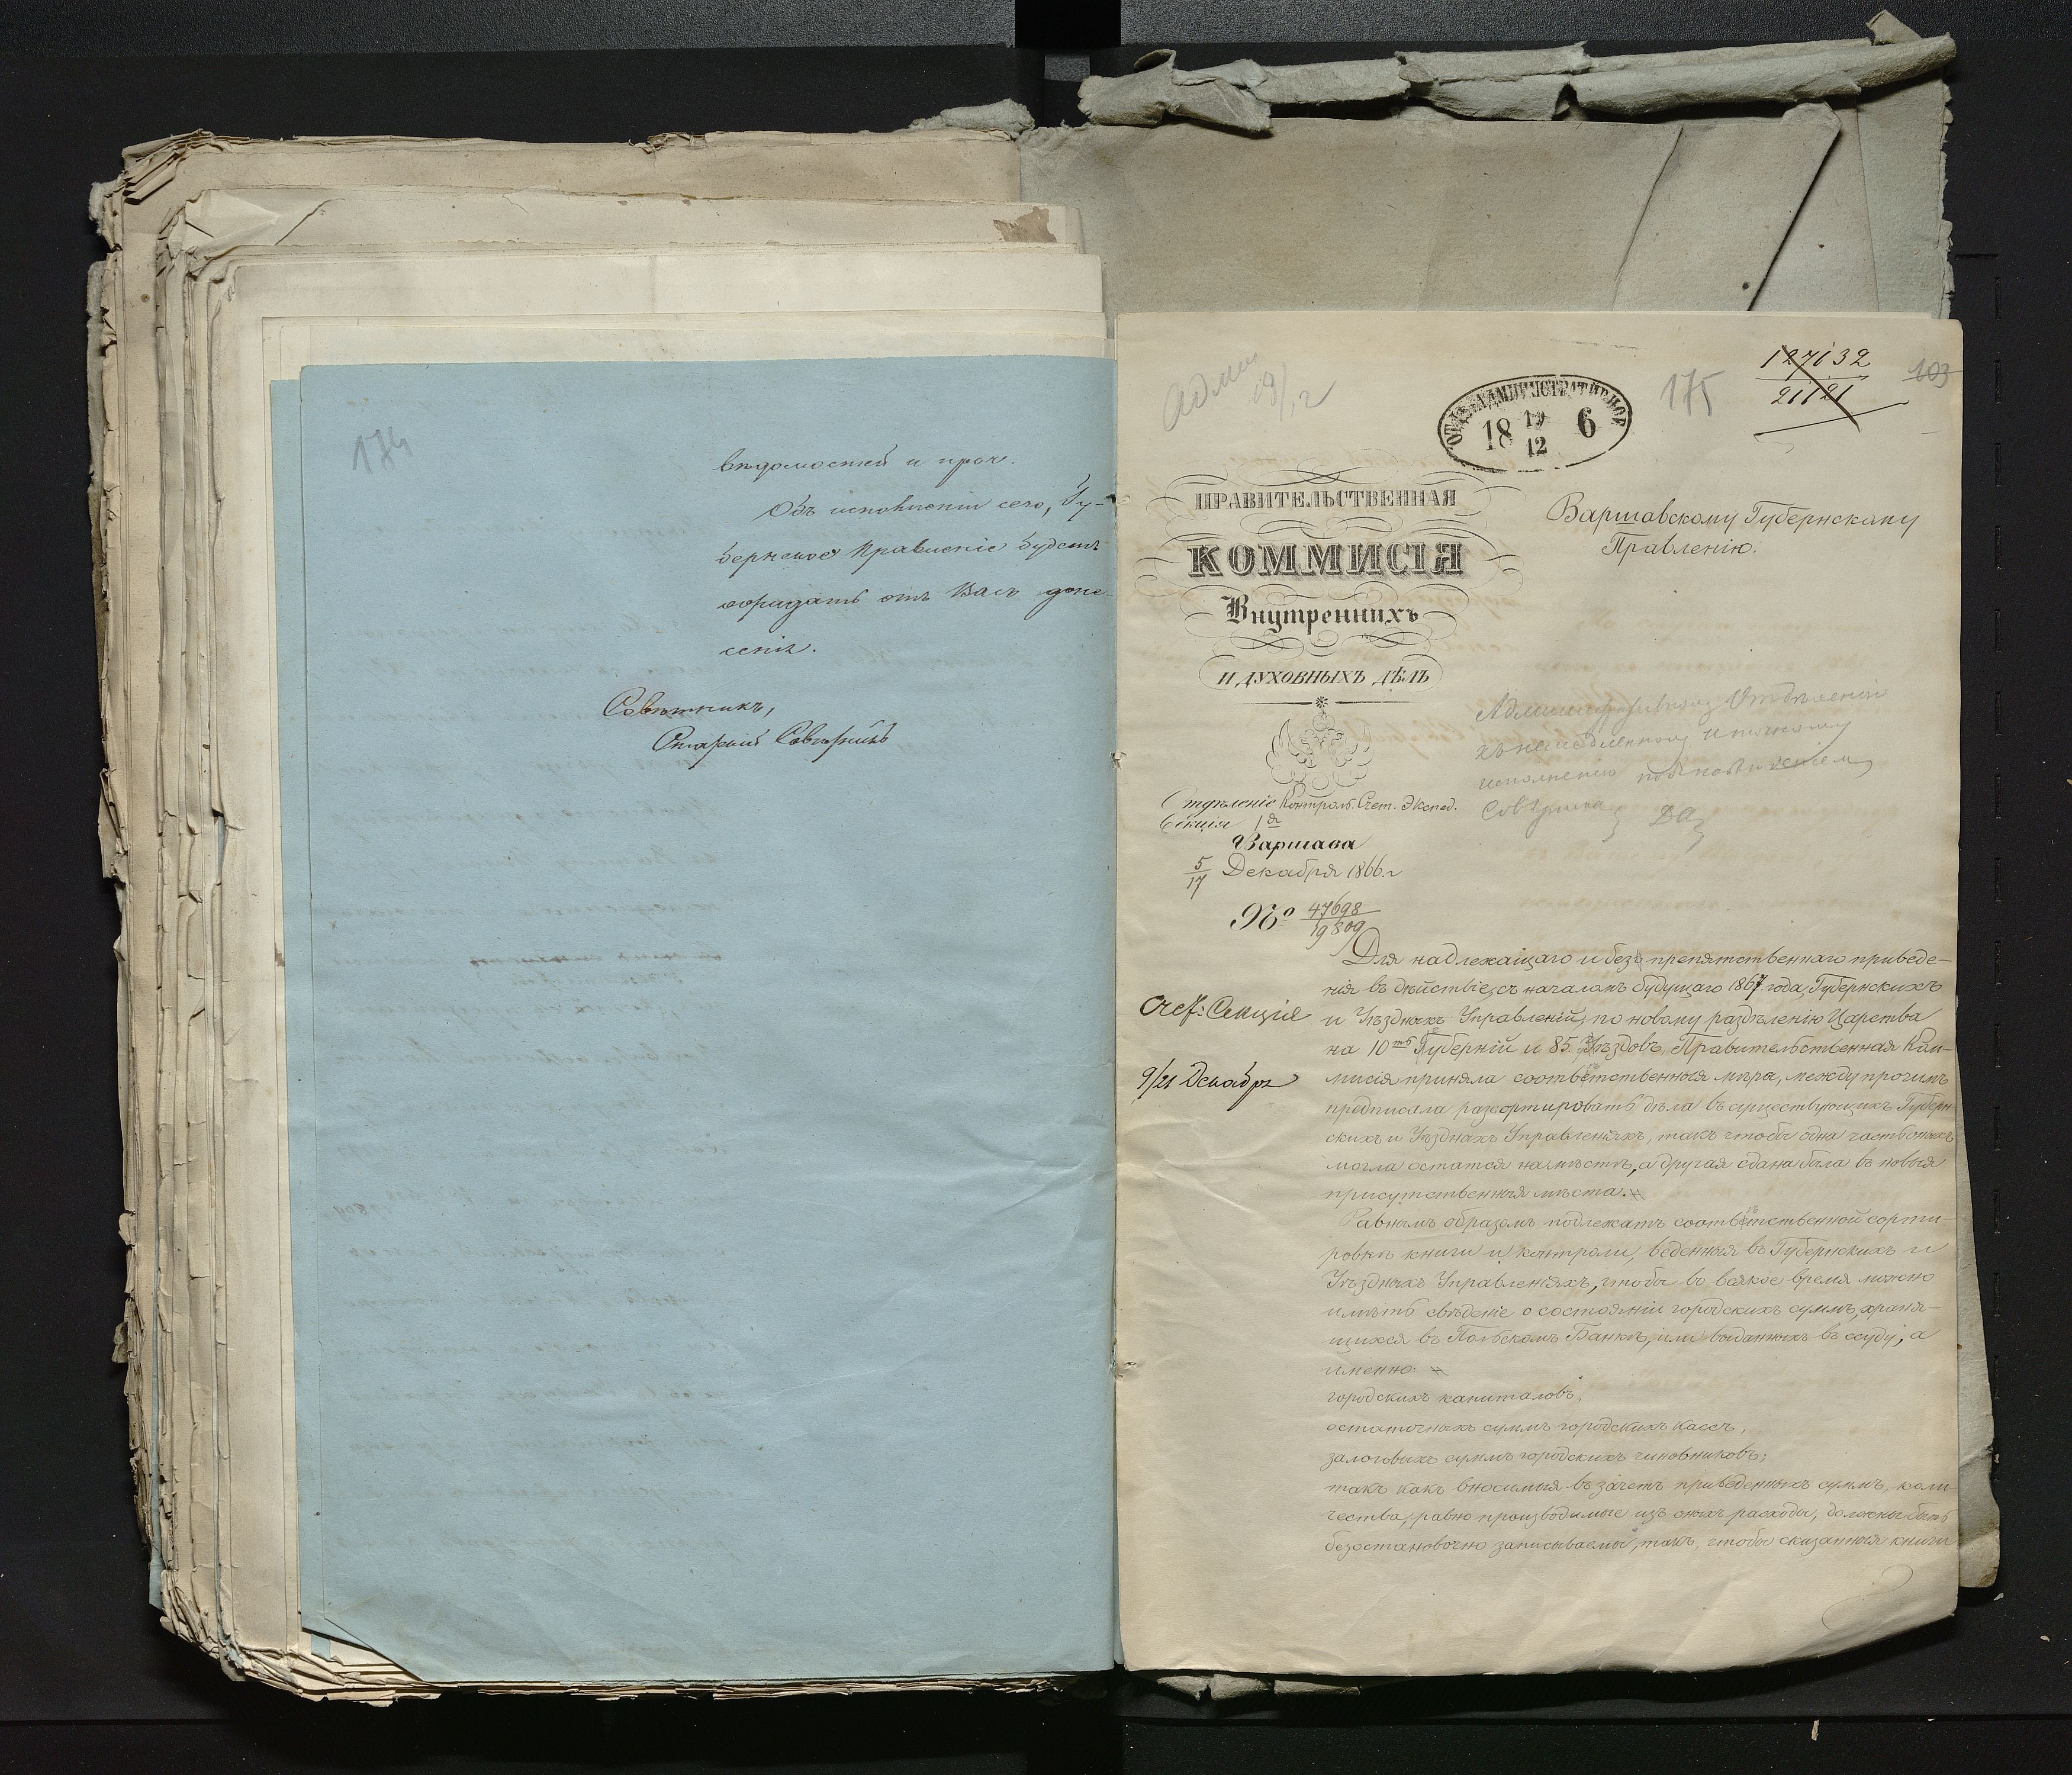 174
вѣдомостей и проч.
Объ исполненіи сего, Гу-
бернское Правленіе будетъ
ожидать отъ Васъ доне-
сенія.
Совѣтникъ,
Старшій
Адми
19/12
ОТДѢЛ. АДМИНИСТРАТИВНОЕ
18 19/12 6
175
127132
21121
103
ПРАВИТЕЛЬСТВЕННАЯ
КОММИСІЯ
Внутреннихъ
И ДУХОВНЫХЪ ДѢЛЪ
Варшавскому Губернскому
Правленію.
Административному Отдѣленію
къ немедленному и точному
исполненію
Отдѣленіе Контрол. Счет. Экспед.
Секція 1я
Варшава
5/17 Декабря 1866 г.
№ 47698
19809
Счет: Секція
9/21 Декабря
Для надлежащаго и безпрепятственнаго приведе-
нія въ дѣйствіе, съ началомъ будущаго 1867 года, Губернскихъ
и Уѣздныхъ Управленій, по новому раздѣленію Царства
на 10ть Губерній и 85 Уѣздовъ, Правительственная Ком-
мисія приняла соотвѣтственныя мѣра, между прочимъ
предписала разсортировать дѣла въ существующихъ Губерн
скихъ и Уѣздныхъ Управленіяхъ, такъ чтобы одна часть оныхъ
могла остатся на мѣстѣ, а другая сдана была въ новыя
присутственныя мѣста.
Равнымъ образомъ подлежатъ соотвѣтственной сорти-
ровкѣ книги и контроли, веденныя въ Губернскихъ и
Уѣздныхъ Управленіяхъ, чтобы во всякое время можно
имѣть свѣденіе о состояніи городскихъ суммъ, храня-
щихся въ Польскомъ Банкѣ, или выданныхъ въ ссуду, а
именно:
городскихъ капиталовъ,
остаточныхъ суммъ городскихъ кассъ,
залоговыхъ суммъ городскихъ чиновниковъ;
такъ какъ вносимыя въ зачетъ приведенныхъ суммъ, коли
чества, равно производимые изъ оныхъ расходы, должны быть
безостановочно записываемы, такъ, чтобы сказанныя книги